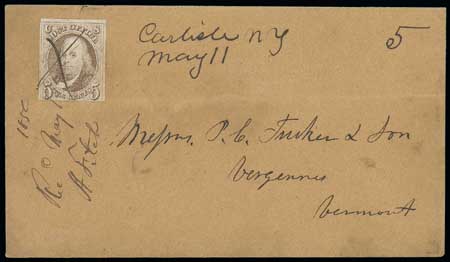 POST OFFICE
5 5
Carlisle NY
May 11
5
Messrs. P. C. Tucker & Son
Vergennes
Vermont
1850
Rec'd May
A Fitch